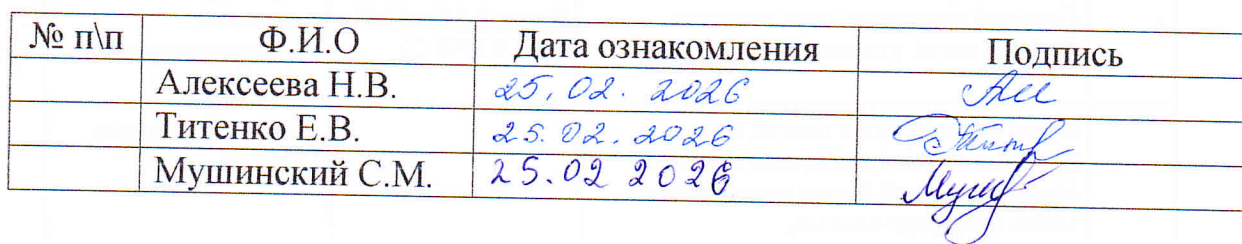 № п\п Ф.И.О Дата ознакомления Подпись
Алексеева Н.В. 25.02.2026
Титенко Е.В. 25.02.2026
Мушинский С.М. 25.02 2026